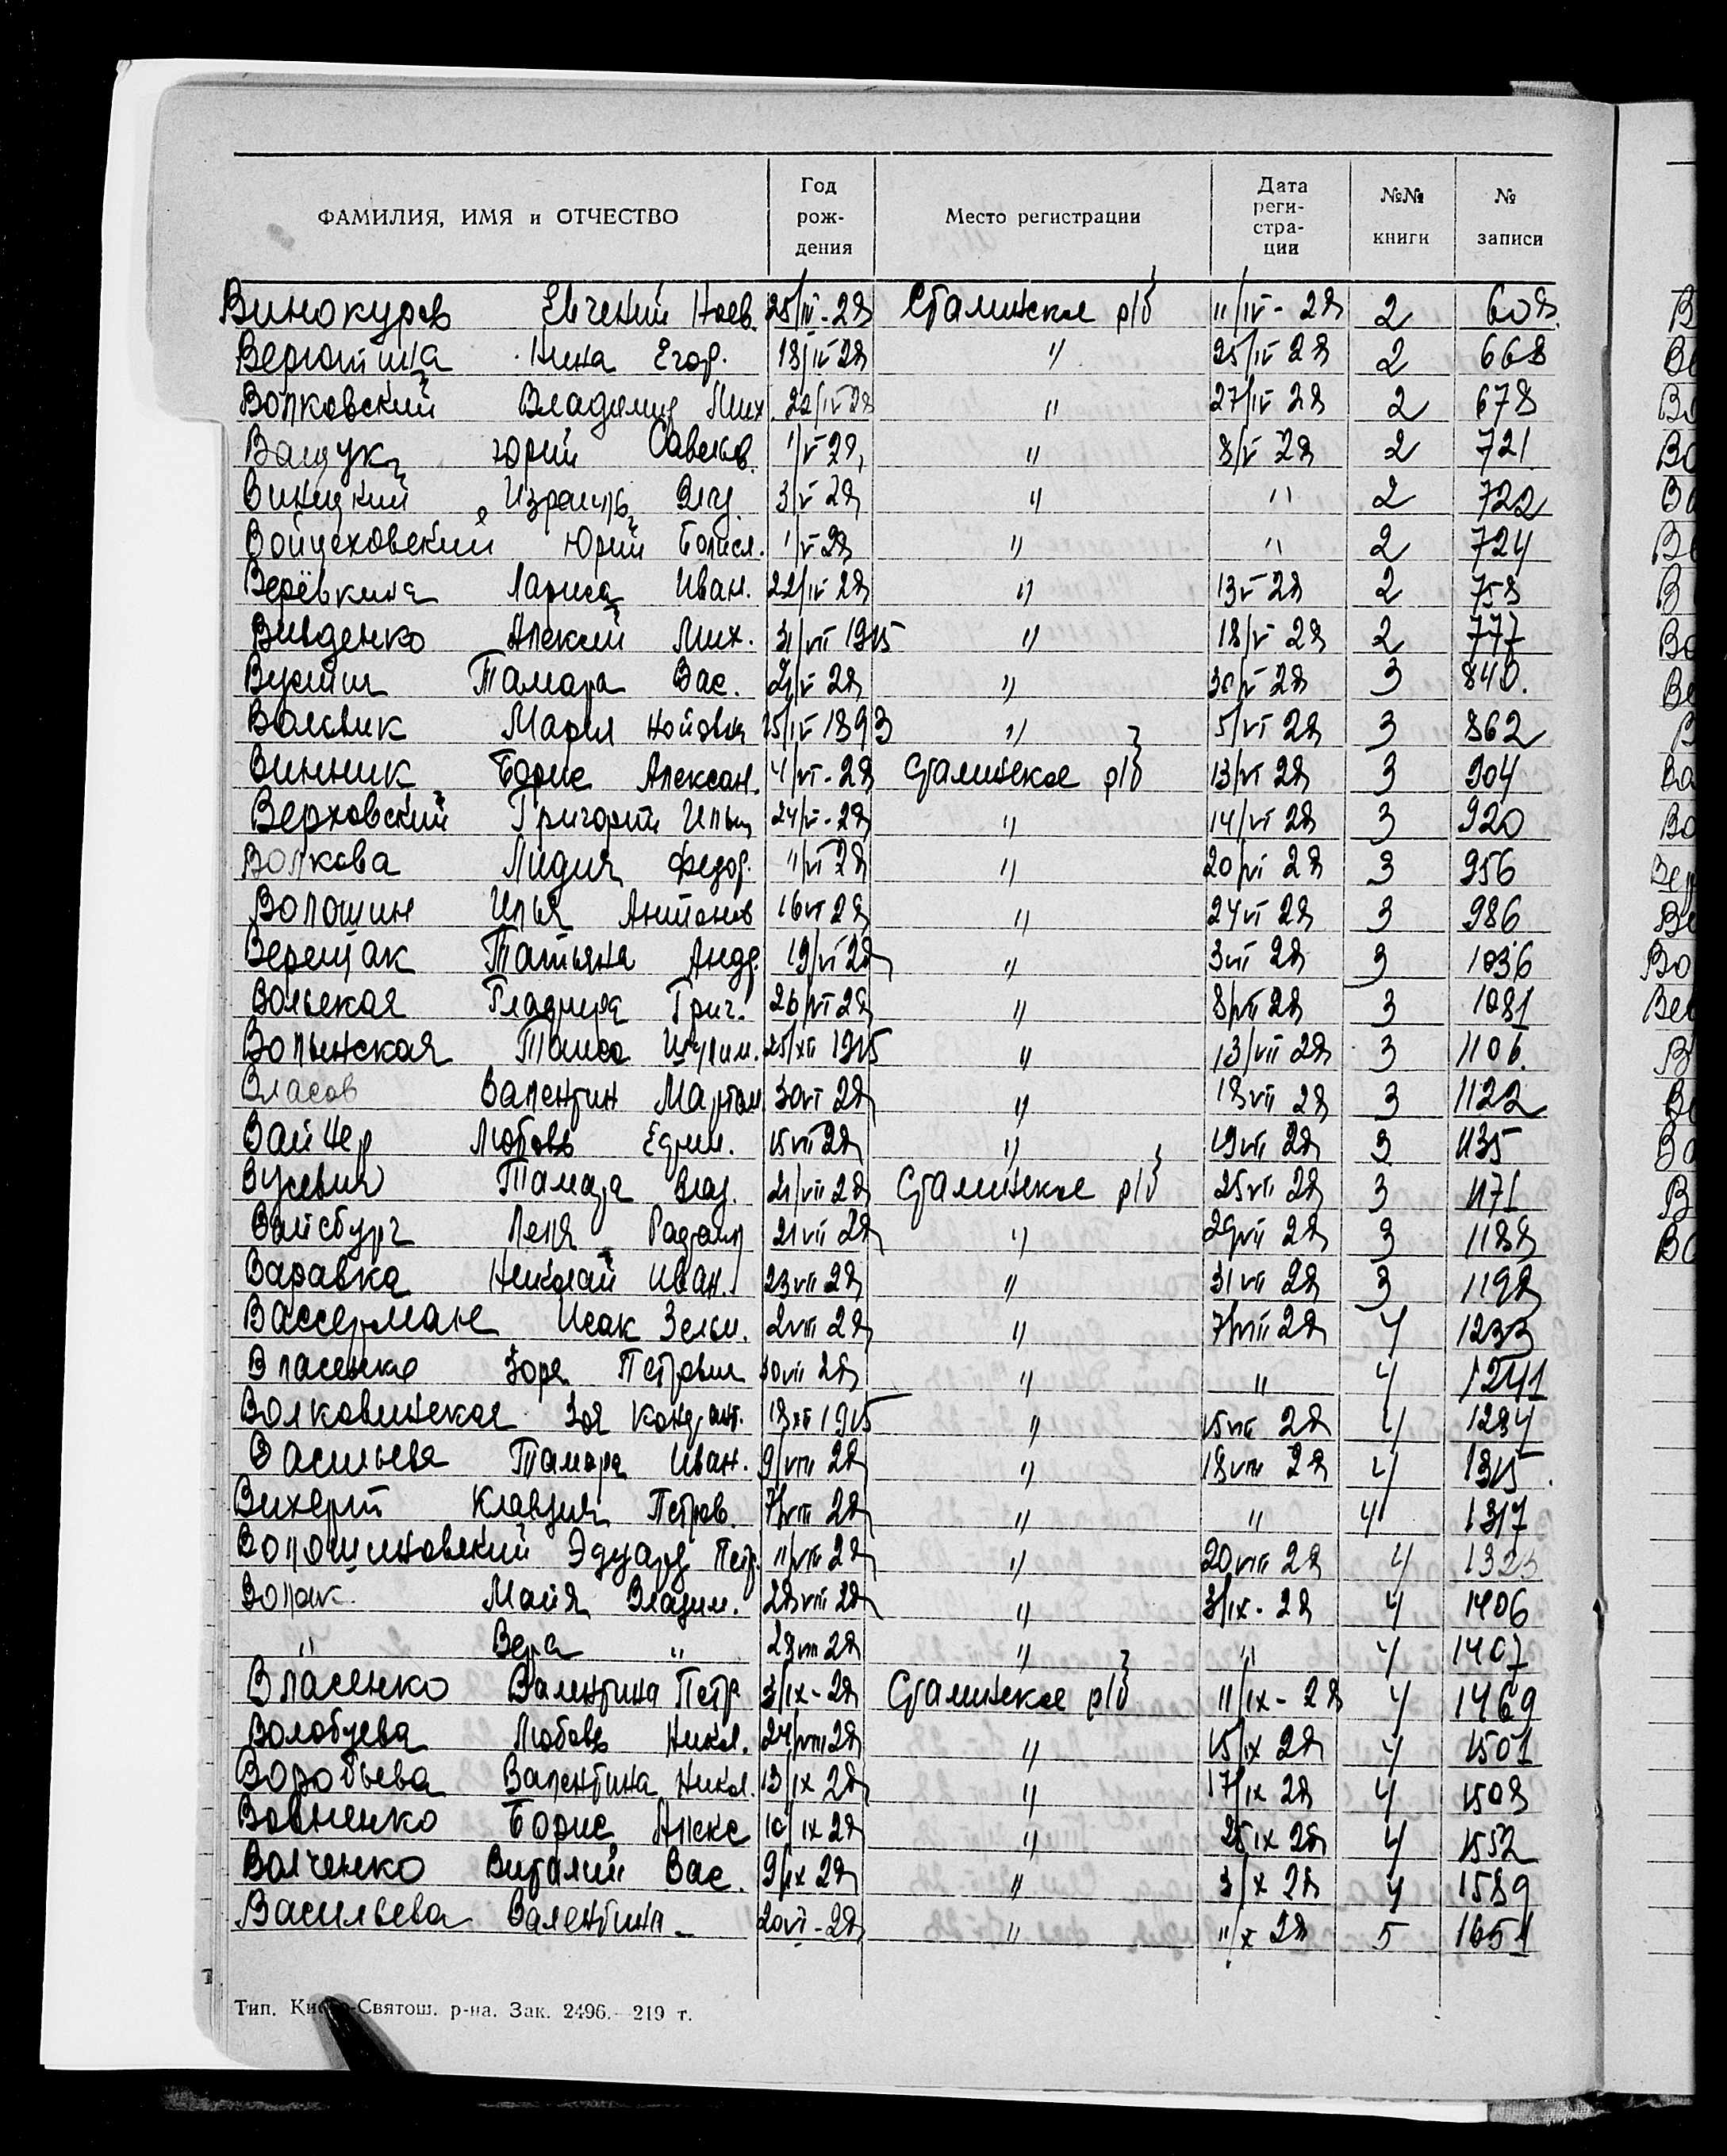 ФАМИЛИЯ, ИМЯ и ОТЧЕСТВО Год рождения Место регистрации Дата регистрации №№ книги № записи
Винокуров Евгений Ноев. 25/III-28 Сталинское р/б 11/IV-28 2 608
Верютина Нина Егор. 18/IV 28 " 25/IV 28 2 668
Волковский Владимир Мих. 22/IV 28 " 27/IV 28 2 678
Ващук Юрий Савельев. 1/V 28 " 8/V 28 2 721
Виницкий Израиль 3/V 28 " " 2 722
Войцеховский Юрий Болисл. 1/V 28 " " 2 724
Верёвкина Лариса Иван. 22/IV 28 " 13 V 28 2 758
Вивденко Алексей Мих. 31/VII 1915 " 18/V 28 2 777
Тамара Вас. 28 " 30/V 28 3 840.
Мария Нойовна 25/IV 1893 " 5/VI 28 3 862
Винник Борис Алексан. 4/VI-28 Сталинское р/б 13/VI 28 3 904
Верховский Григорий Ильич 24/V-28 " 14/VI 28 3 920
Волкова Лидия Федор. 11/VI 28 " 20/VI 28 3 956
Волошин Илья Антонов 16 VI 28 " 24 VI 28 3 986
Верещак Татьяна Андр. 19/VI 28 " 3 VII 28 3 1036
Вольская Григ. 26/VI 28 " 8/VII 28 3 1081
Волынская Таиса Шулим. 25/XII 1915 " 13/VII 28 3 1106.
Власов Валентин Мартын 30 VI 28 " 18 VII 28 3 1122
Вайнер Любовь Ефим. 15 VII 28 " 19 VII 28 3 1135
Тамара Влад. 21/VII 28 Сталинское р/б 25 VII 28 3 1171
Вайсбург Леля 21 VII 28 " 29 VII 28 3 1188
Варавка Николай Иван. 23 VII 28 " 31 VII 28 3 1198
Вассерман Исак Зельм. 2 VIII 28 " 7/VIII 28 4 1233
Власенко Зоря Петровна 30 VII 28 " " 4 1241
Волковинская Зоя Кондрат. 18 XII 1915 " 15 VIII 28 4 1284
Васильева Тамара Иван. 9/VIII 28 " 18 VIII 28 4 1315.
Вихерт Клавдия Петров. 7/VIII 28 " " 4 1317
Волошиновский Эдуард Петр. 11/VIII 28 " 20 VIII 28 4 1323
Волак Майя Владим. 28 VIII 28 " 3/IX-28 4 1406
" Вера " 28 VIII 28 " " 4 1407
Власенко Валентина Петр 3/IX-28 Сталинское р/б 11/IX-28 4 1469
Волобуева Любовь Никол. 24/VIII 28 " 15/IX 28 4 1501
Воробьева Валентина Никол. 13/IX 28 " 17/IX 28 4 1508
Вовненко Борис Алекс 10/IX 28 " 25 IX 28 4 1552
Волченко Виталий Вас. 9/IX 28 " 3/X 28 4 1589
Васильева Валентина - 20 VI-28 " 11/X 28 5 1651
Тип. Киево-Святош. р-на. Зак. 2496.—219 т.